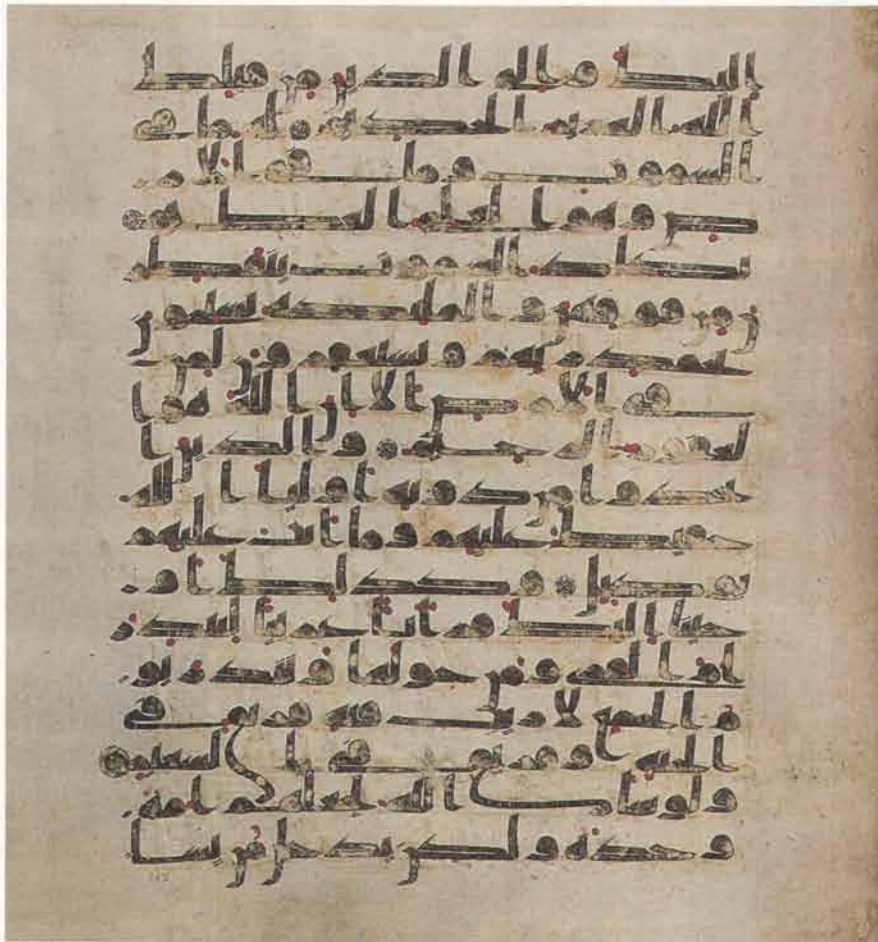 اليك والى الذين من قبلك
الله العزيز الحكيم له ما في
السموت وما في الار
ض وهو العلي العظيم
تكاد السموت يتفطر
ن من فوقهن والملئكة يسبحون
بحمد ربهم ويستغفرون لمن
في الارض الا ان الله هو ا
لغفور الرحيم والذين ا
تخذوا من دونه اوليا الله
حفيظ عليهم وما انت عليهم
بوكيل وكذلك او
حينا اليك قرانا عربيا لتنذر
ام القرى ومن حولها وتنذر يو
م الجمع لا ريب فيه فريق في
الجنة وفريق في السعير
ولو شا الله لجعلهم امة
وحدة ولكن يدخل من يشا